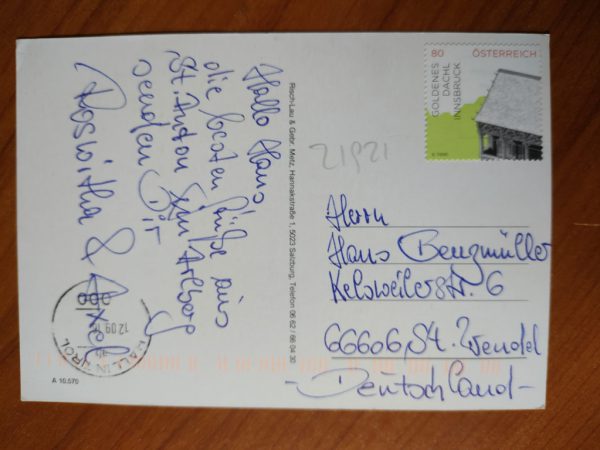 Hallo Hans!
die besten Grüße aus
St. Anton am Arlberg
senden Dir
Roswitha & Axel
Risch-Lau & Gebr. Metz, Hannakstraße 1, 5023 Salzburg, Telefon 06 62 / 66 04 30
80 ÖSTERREICH
GOLDENES
DACHL
INNSBRUCK
21921
Herrn
Hans Benzmüller
Kelsweilerstr. 6
66606 St. Wendel
-Deutschland-
12.09.
HALL IN TIROL
A 10.570